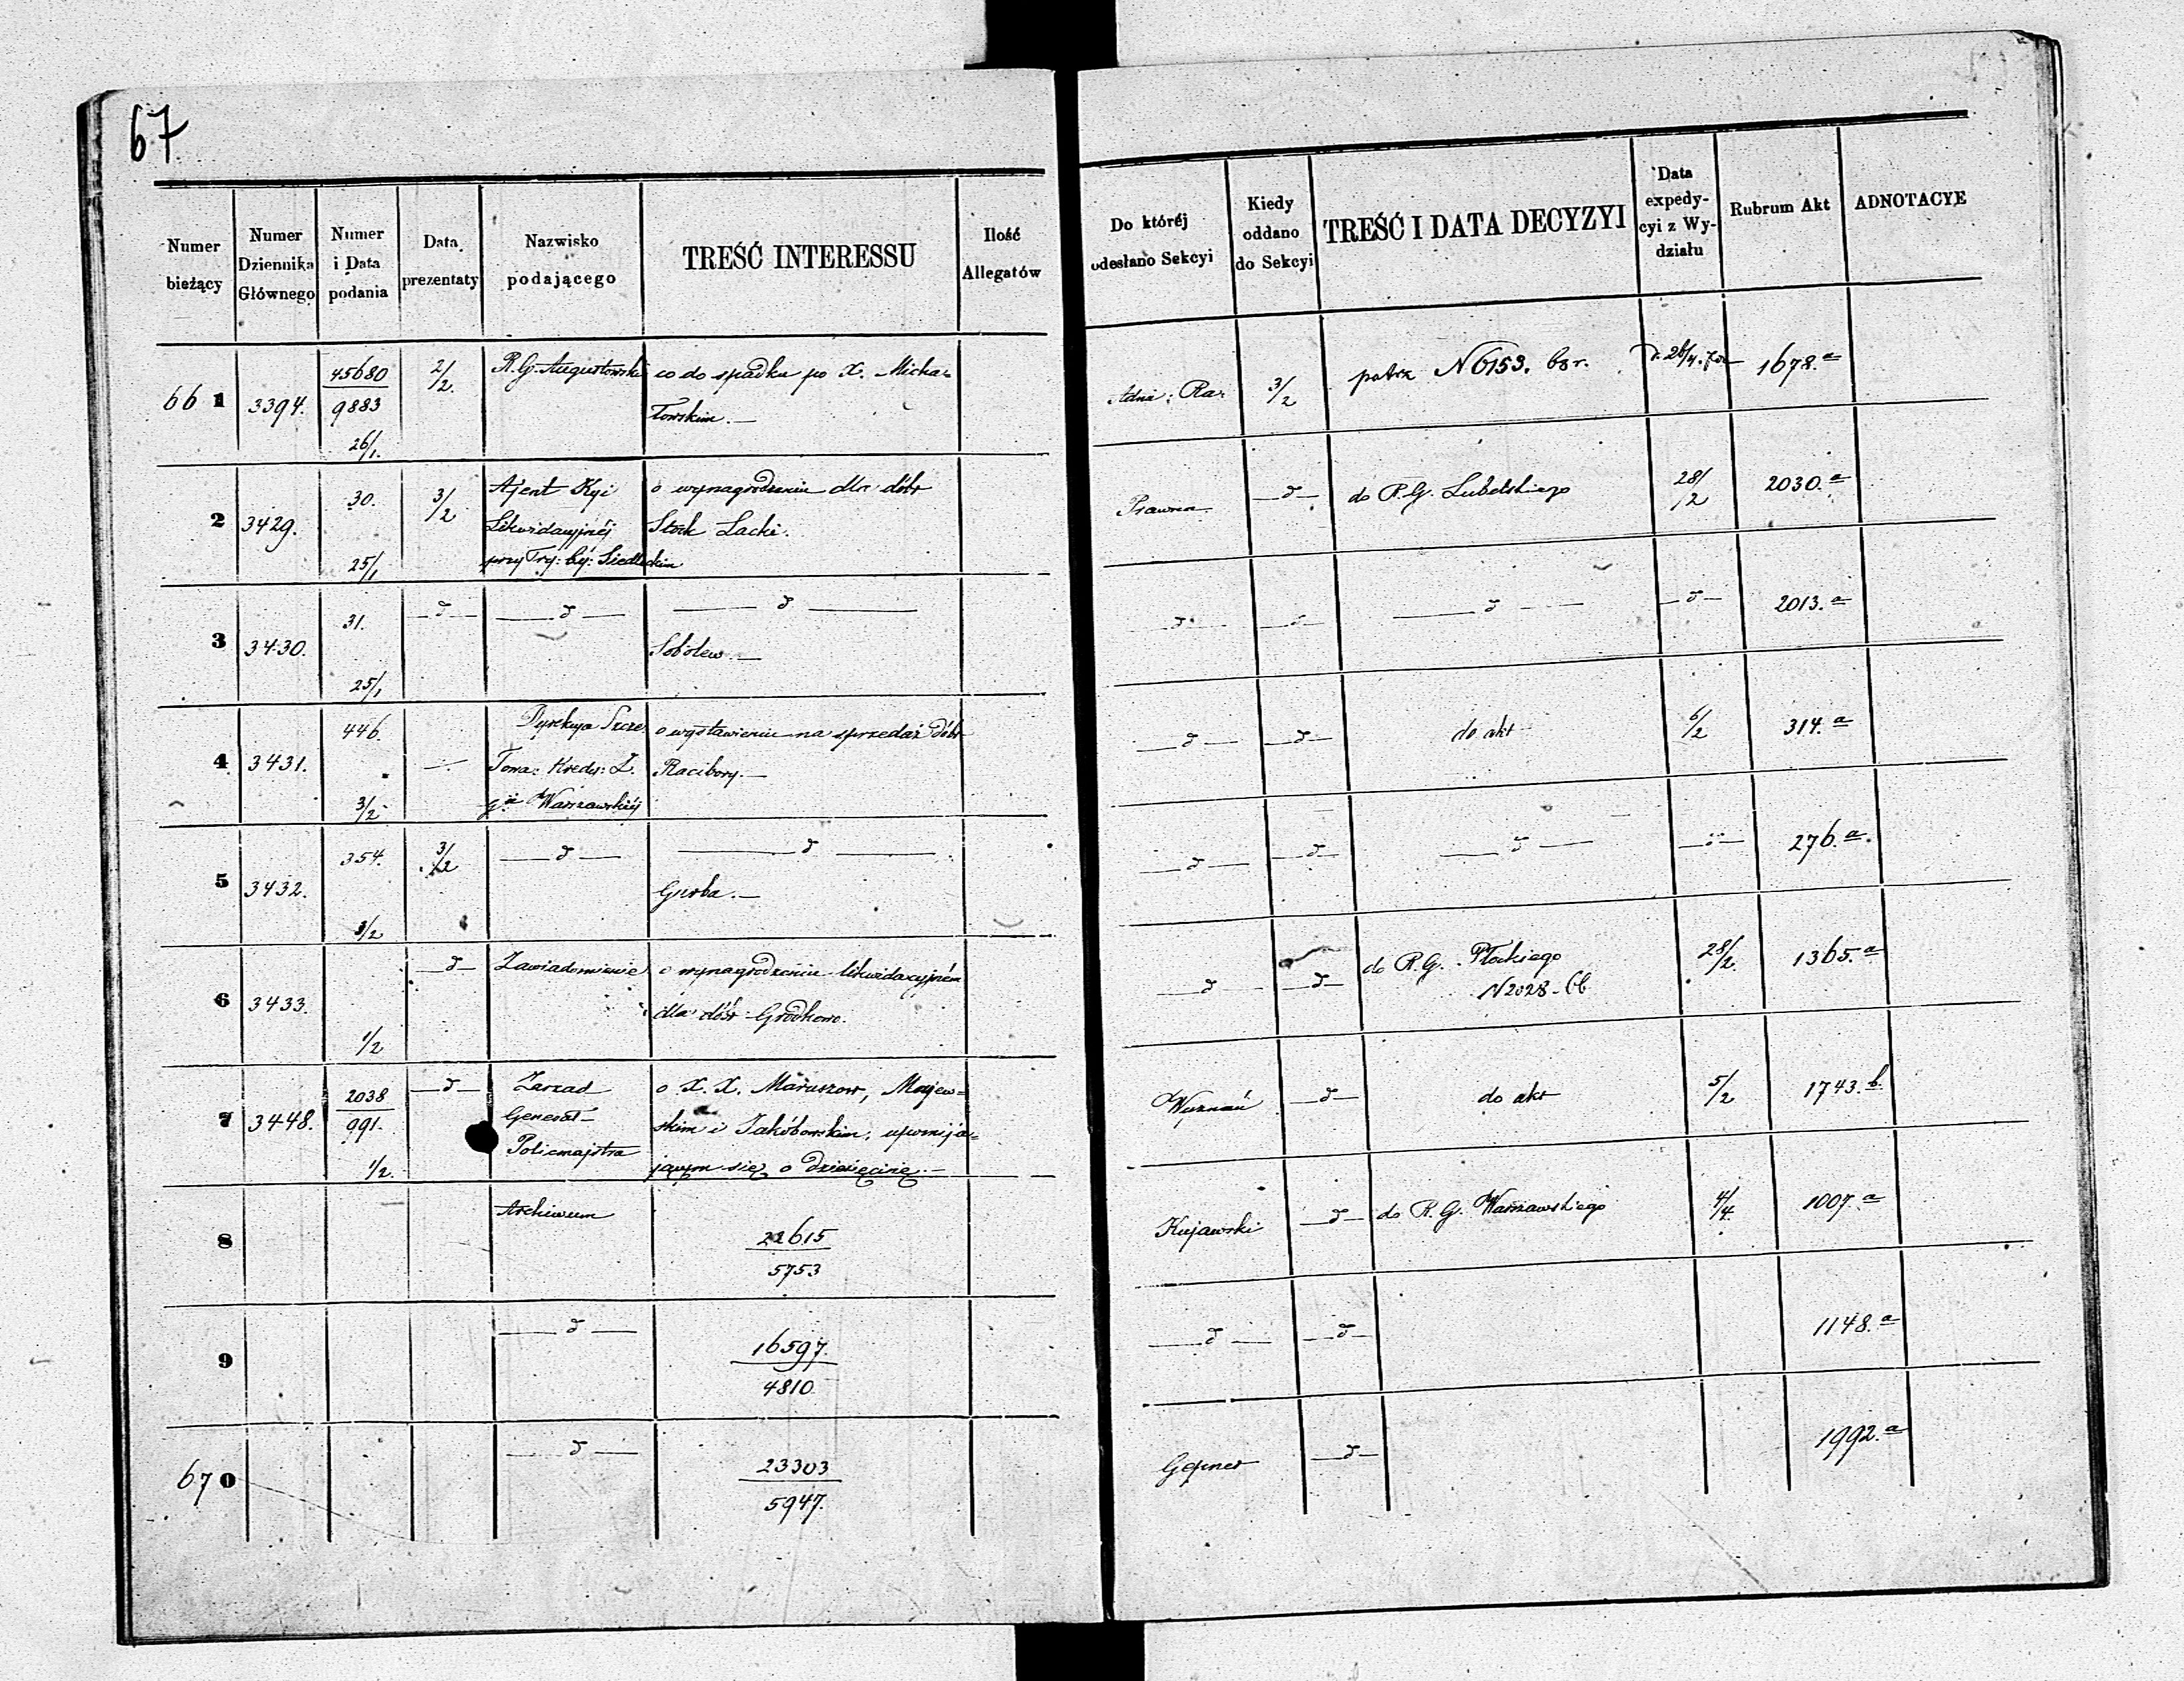 67
Numer bieżący | Numer Dziennika Głównego | Numer i Data podania | Data prezentaty | Nazwisko podającego | TREŚĆ INTERESSU | Ilość Allegatów | Do któréj odesłano Sekcyi | Kiedy oddano do Sekcyi | TREŚĆ I DATA DECYZYI | Data expedycyi z Wydziału | Rubrum Akt | ADNOTACYE
66 1 | 3394. | 45680 / 9883 26/1. | 2/2. | R. G. Augustowski | co do spadku po X. Micha= | | Adm: Ra. | 3/2 | patrz N 6153. 63 r. | | 1678. a
łowskim.—
2 | 3429. | 30. 25/1 | 3/2 | Ajent Kyi | o wynagrodzeniu dla dóbr | | Prawna | —d— | do R. G. Lubelskiego | 28/2 | 2030. a
Likwidacyjnéj | Stok Lacki.
przy Try: Cy: Siedleckim
3 | 3430. | 31. 25/1 | —d— | —d— | —d— | | —d— | —d— | —d— | —d— | 2013. a
Sobolew.—
4 | 3431. | 446. 3/2 | | Dyrekcya Szcze | o wystawieniu na sprzedaż dóbr | | —d— | —d— | do akt | 6/2 | 314. a
Towa: Kredy: Z. | Racibory.—
Warszawskiéj
5 | 3432. | 354. 3/2 | 3/2 | —d— | —d— | | —d— | —d— | —d— | —d— | 276. a.
6 | 3433. | 1/2 | —d— | Zawiadomienie | o wynagrodzeniu likwidacyjném | | —d— | —d— | do R. G. Płockiego | 28/2. | 1365. a
dla dóbr Grodkowo. | N 2028
7 | 3448. | 2038 / 991. 1/2. | —d— | Zarząd | o X. X. Maruszow, Majew= | | Wyznań | —d— | do akt | 5/2 | 1743. b.
Generał | skim i Jakóbowskim, upomija=
Policmajstra | jącym się o dziesięcinę.—
8 | | | | Archiwum | 22615 / 5753 | | Kujawski | —d— | do R. G. Warszawskiego | 4/4. | 1007. a
9 | | | | —d— | 16597. / 4810. | | —d— | —d— | | | 1148. a
67 0 | | | | —d— | 23303 / 5947. | | | —d— | | | 1992. a